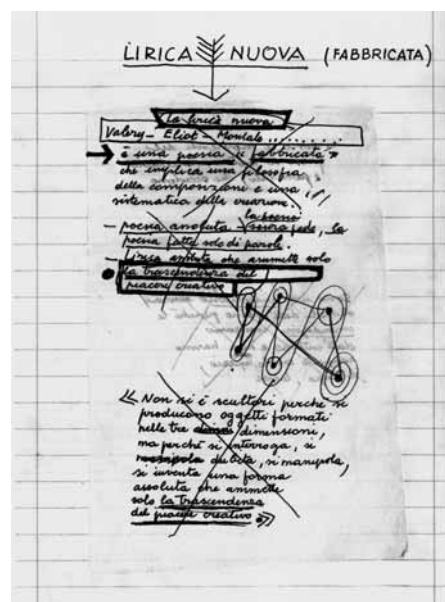 LIRICA NUOVA (FABBRICATA)
La lirica nuova
Valery - Eliot - Montale ........
è una poesia "fabbricata"
che implica una filosofia
della composizione e una
sistematica della creazione.
- poesia assoluta la poesia
senza fede, la
poesia fatta solo di parole.
- Lirica assoluta che ammette solo
la trascendenza del
piacere creativo
« Non si è scultori perché si
producono oggetti formati
nelle tre dimensioni,
ma perché si interroga, si
dubita, si manipola,
si inventa una forma
assoluta che ammette
solo la trascendenza
del piacere creativo »